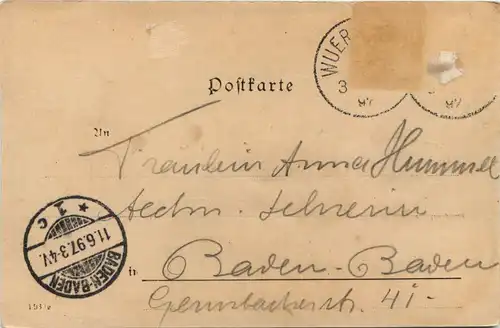 WUER
3
97
97
Postkarte
An
Fräulein Anna Hummel
techn. Lehrerin
in Baden-Baden
Gernsbacherstr. 41-
* 1 c
11.6.97.3-4V.
BADEN-BADEN